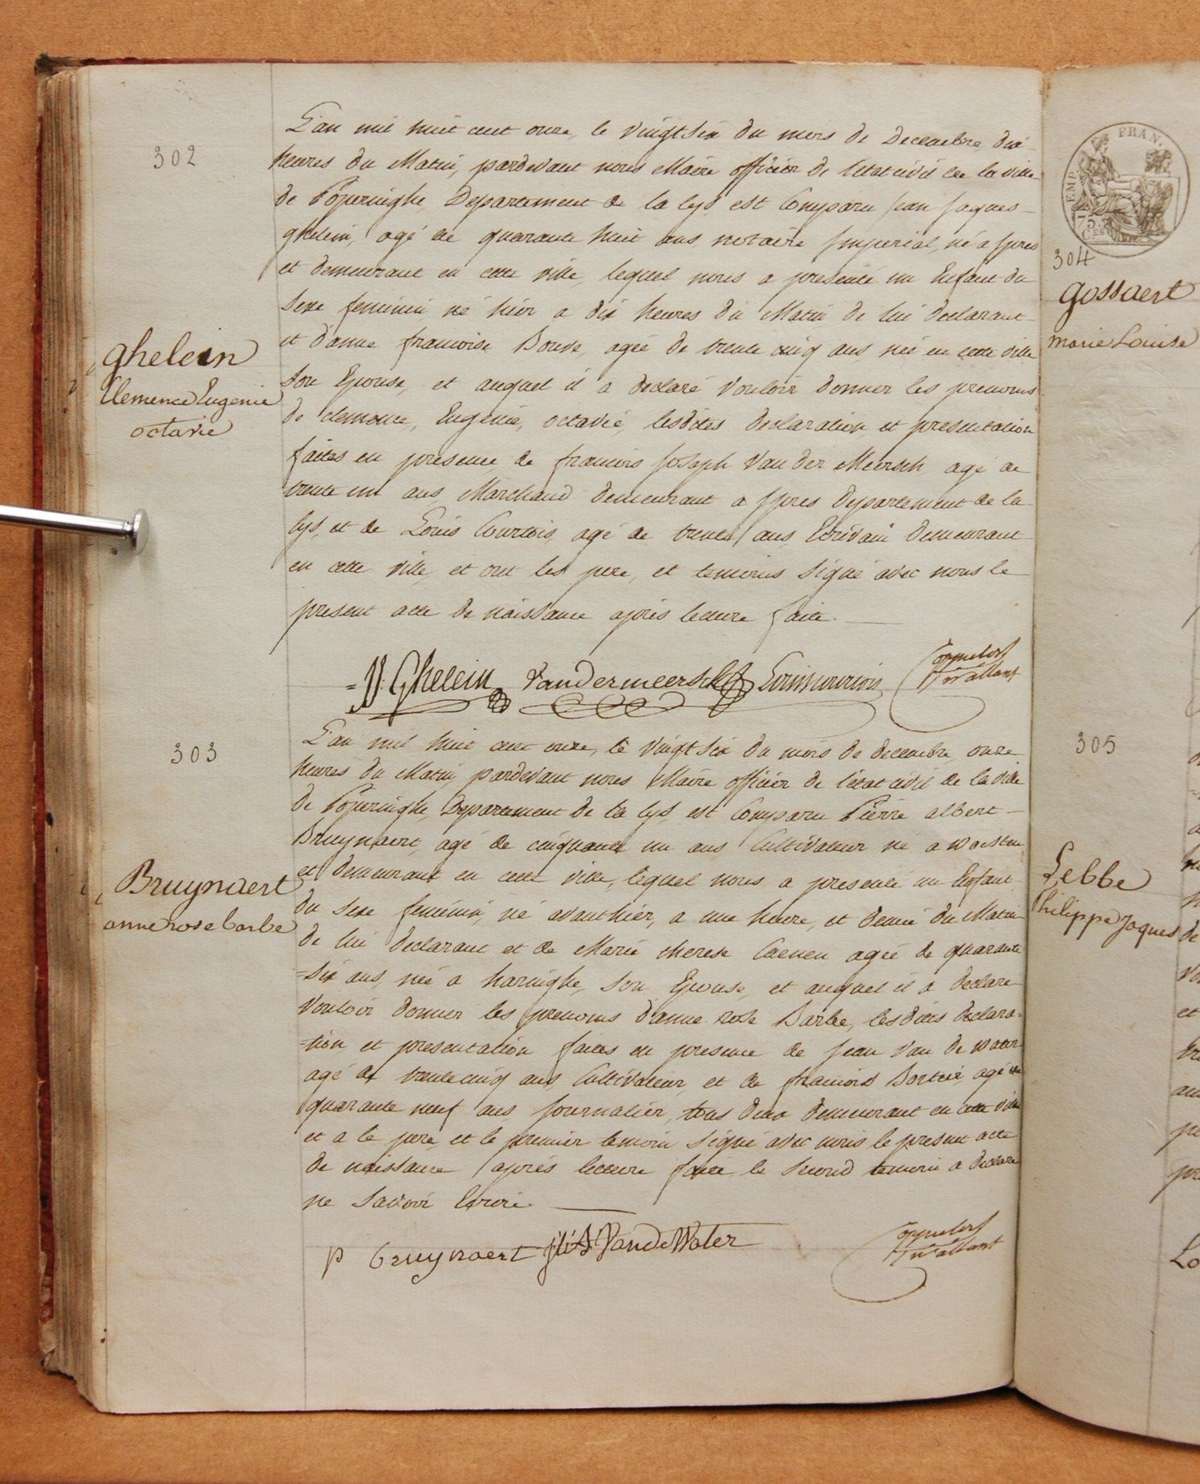 302
L'an mil huit cent onze, le vingtsix du mois de Decembre dix
heures du Matin, pardevant nous Maire officier de l'etat civil de la ville
de Poperinghe Departement de la Lys est Comparu Jean Jaques
ghelein, agé de quarante huit ans notaire Imperial, né a Ypres
et demeurant en cette ville, lequel nous a presenté un Enfant du
Sexe feminin né hier a dix heures du Matin de lui declarant
et d'anne francoise agée de trente cinq ans née en cette ville
Son Epouse, et auquel il a declaré vouloir donner les prenoms
de clemence, Eugenie, octavie, lesdites declaration et presentation
faites en presence de francois Joseph Van der Meersch agé de
trente un ans Marchand demeurant a Ypres Departement de la
Lys, et de Louis Courtois, agé de trente ans Ecrivain demeurant
en cette ville, et ont les pere, et temoins Signé avec nous le
present acte de naissance après lecture faite.
ghelein
Clemence Eugenie
octavie
JJ Ghelein Vandermeersch
303
L'an mil huit cent onze, le vingtsix du mois de decembre, onze
heures du Matin, pardevant nous Maire officier de l'etat civil de la ville
de Poperinghe, Departement de la Lys, est Comparu Pierre albert
Bruynaert, agé de cinquante un ans Cultivateur né a
et demeurant en cette ville, lequel nous a presenté un Enfant
du Sexe feminin, né avanthier, a une heure, et demie du Matin
de lui declarant et de Marie therese Caenen agée de quarante
=six ans, née a haringhe, Son Epouse, et auquel il a declare
vouloir donner les prenoms d'anne rose Barbe, lesdites declara-
=tion et presentation faites en presence de Jean Van de water
agé de trentecinq ans Cultivateur, et de francois agé de
quarante neuf ans Journalier, tous deux demeurant en cette ville
et a le pere, et le premier temoin Signé avec nous le present acte
de naissance après lecture faite le Second temoin a declare
ne Savoir Ecrire.
Bruynaert
anne rose barbe
P Bruynaert Van de Water
EMP. FRAN.
304
gossaert
marie Louise
305
Lebbe
Philippe Jaques